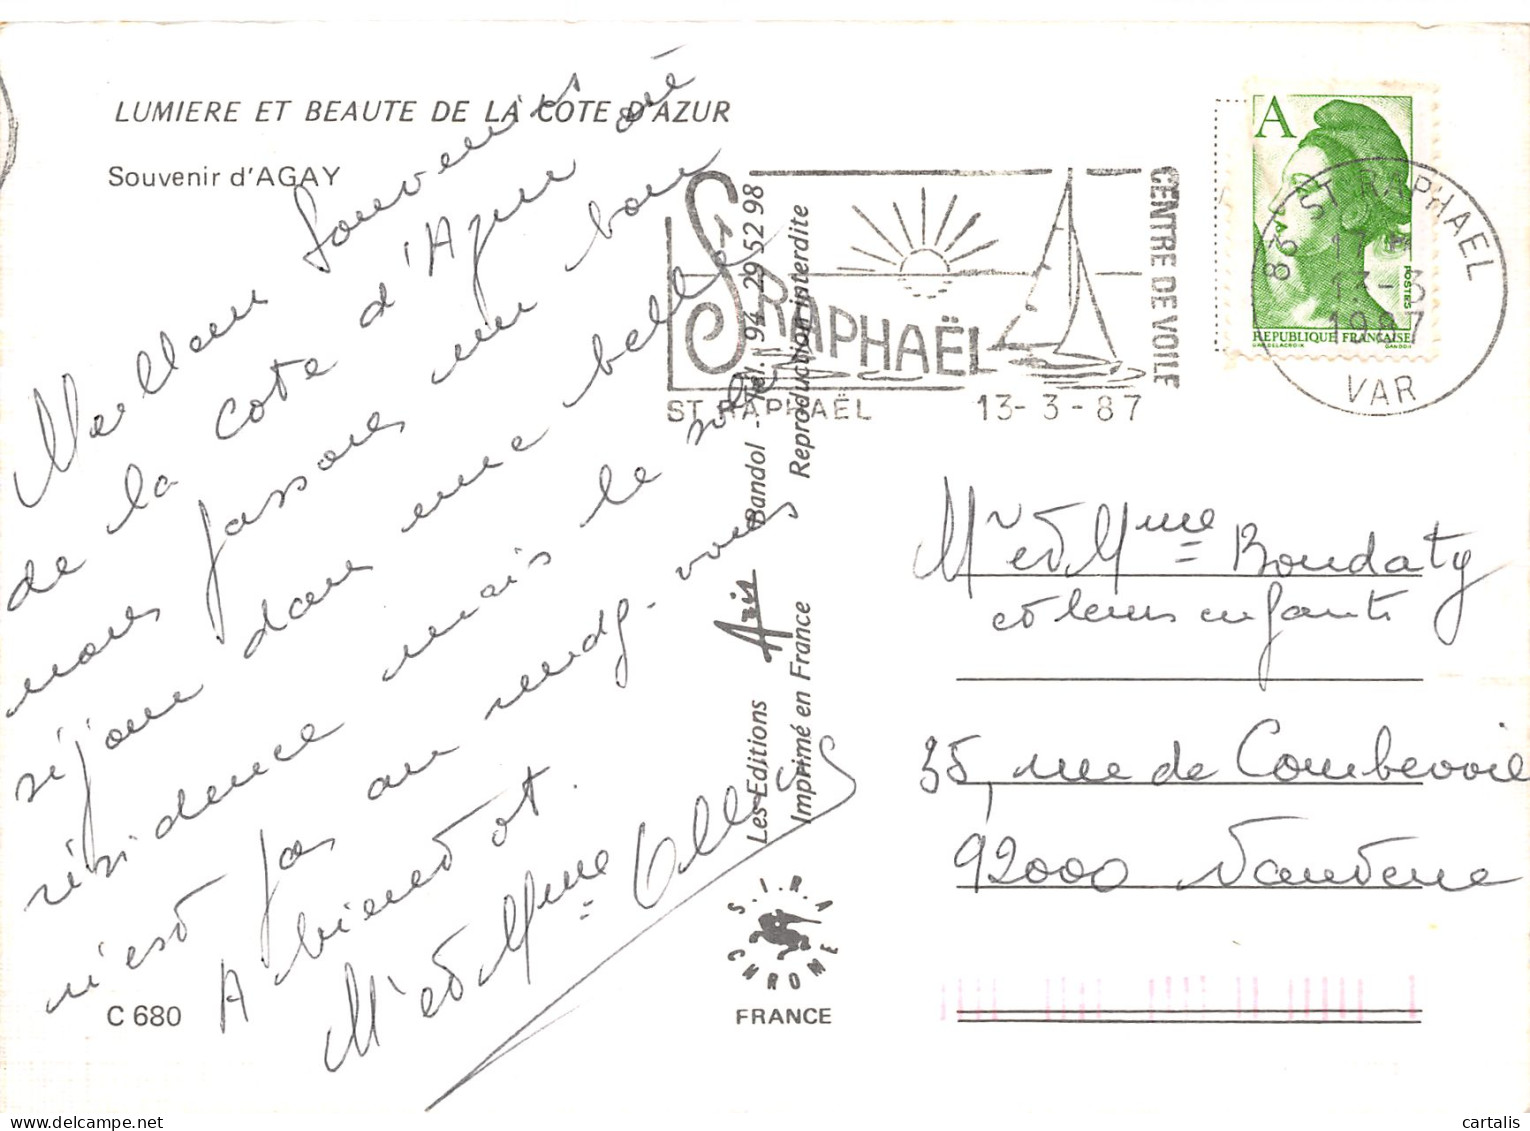 LUMIERE ET BEAUTE DE LA COTE D'AZUR
Souvenir d'AGAY
Meilleurs souvenirs
de la cote d'Azur où
nous passons un bon
séjour dans une belle
résidence mais le soleil
n'est pas au rendez-vous
A bientot.
Mr et Mme
C 680
Les Editions Aris Bandol - Tél. 94 29 52 98
Imprimé en France Reproduction interdite
S.I.R.A CHROME
FRANCE
ST RAPHAËL
CENTRE DE VOILE
ST RAPHAËL 13-3-87
A
POSTES
REPUBLIQUE FRANÇAISE
83 ST RAPHAEL
17 H
13-3
1987
VAR
Mr et Mme Boudaty
et leurs enfants
35, rue de Courbevoie
92000 Nanterre
cartalis